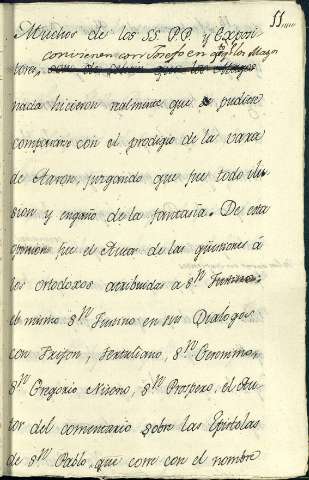 55
Muchos de los SS. PP. y Exposi
convienen con Josefo en q.e los Magos
tores,
nada hicieron realmente que se pudiese
compararse con el prodigio de la vara
de Aaron, juzgando que fue todo ilu-
sion y engaño de la fantasía. De esta
opinion fue el Autor de las questiones á
los ortodoxos atribuidas a S.n Justino:
el mismo S.n Justino en su Dialogo
con Trifon, Tertuliano, S.n Geronimo,
S.n Gregorio Niseno, S.n Prospero, el Au-
tor del comentario sobre las Epistolas
de S.n Pablo, que corre con el nombre